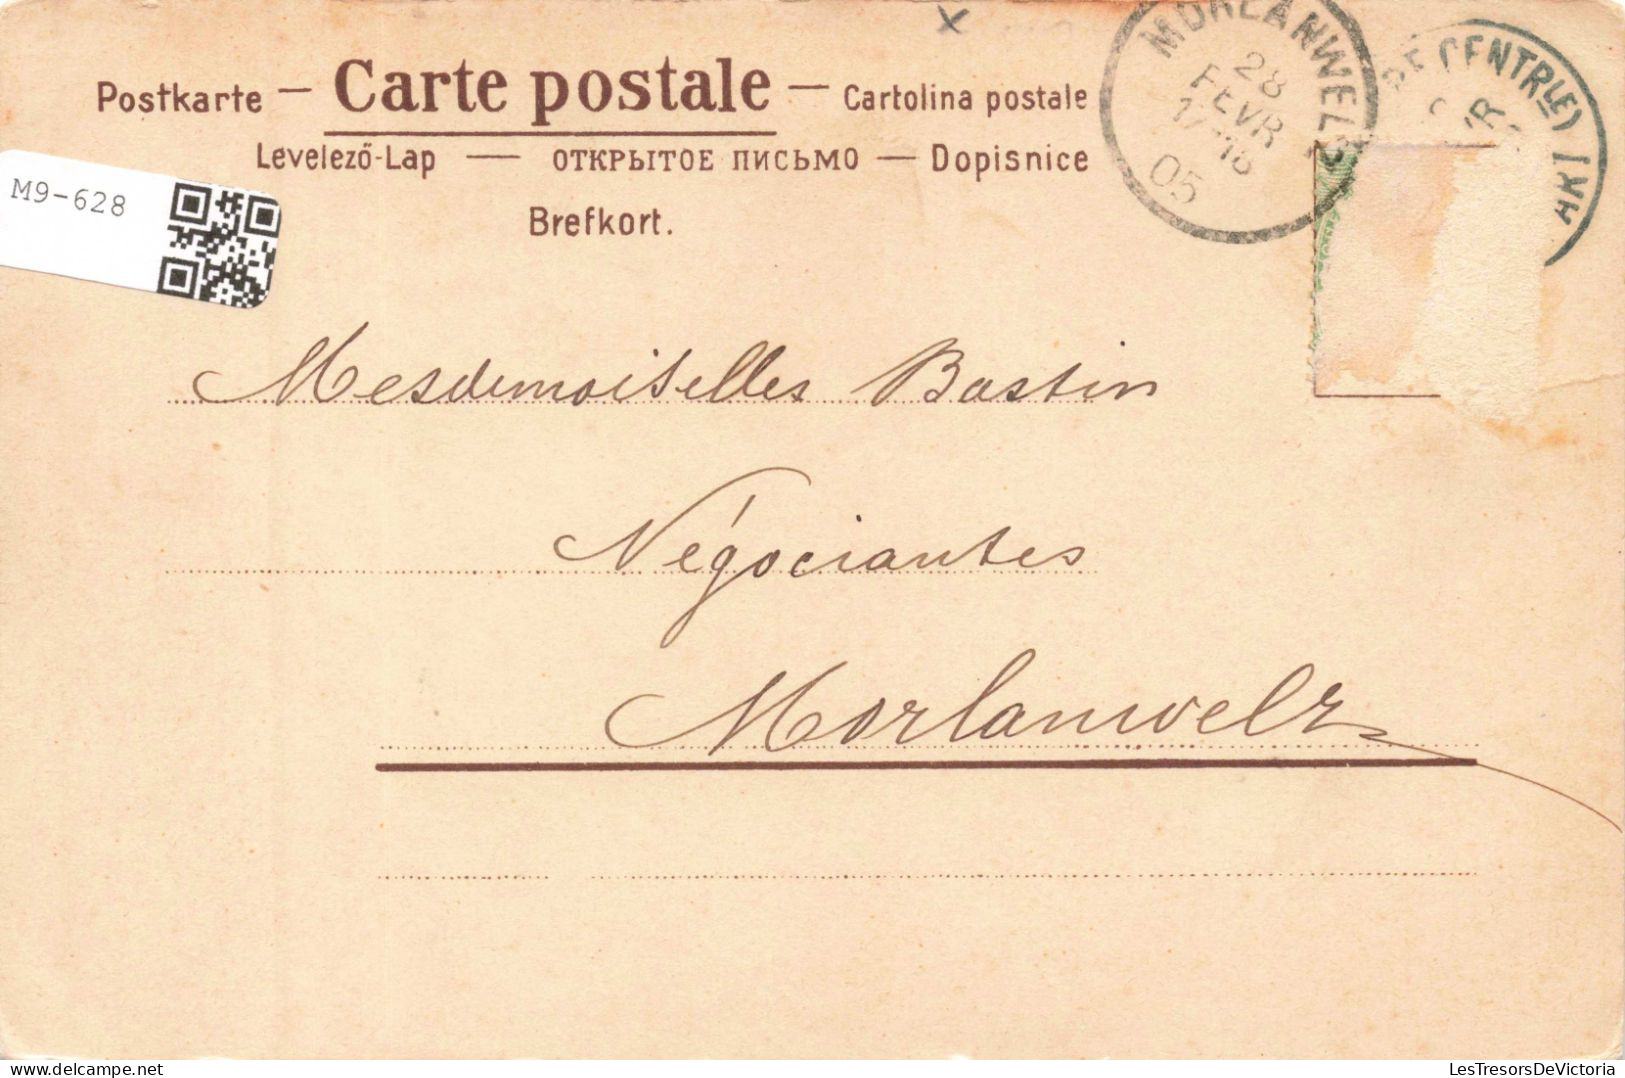 Postkarte — Carte postale — Cartolina postale
Levelező-Lap — ОТКРЫТОЕ ПИСЬМО — Dopisnice
Brefkort.
M9-628
MORLANWELZ
28
FEVR
17-18
05
CENTRLE)
Mesdemoiselles Bastin
Négociantes
Morlanwelz
LesTresorsDeVictoria